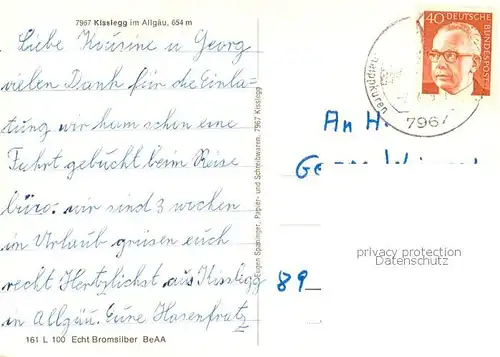 7967 Kisslegg im Allgäu, 654 m
Liebe Kousine u Georg
vielen Dank für die Einla-
tung wir ham schon eine
Fahrt gebucht beim Reise
büro. wir sind 3 wochen
in Urlaub grüsen euch
recht Hertzlichst aus Kisslegg
in Allgäu. Eure Hasenfratz
161 L 100 Echt Bromsilber BeAA
Eugen Spaninger, Papier- und Schreibwaren, 7967 Kisslegg
40 DEUTSCHE BUNDESPOST
7967
An H.
privacy protection
Datenschutz
89